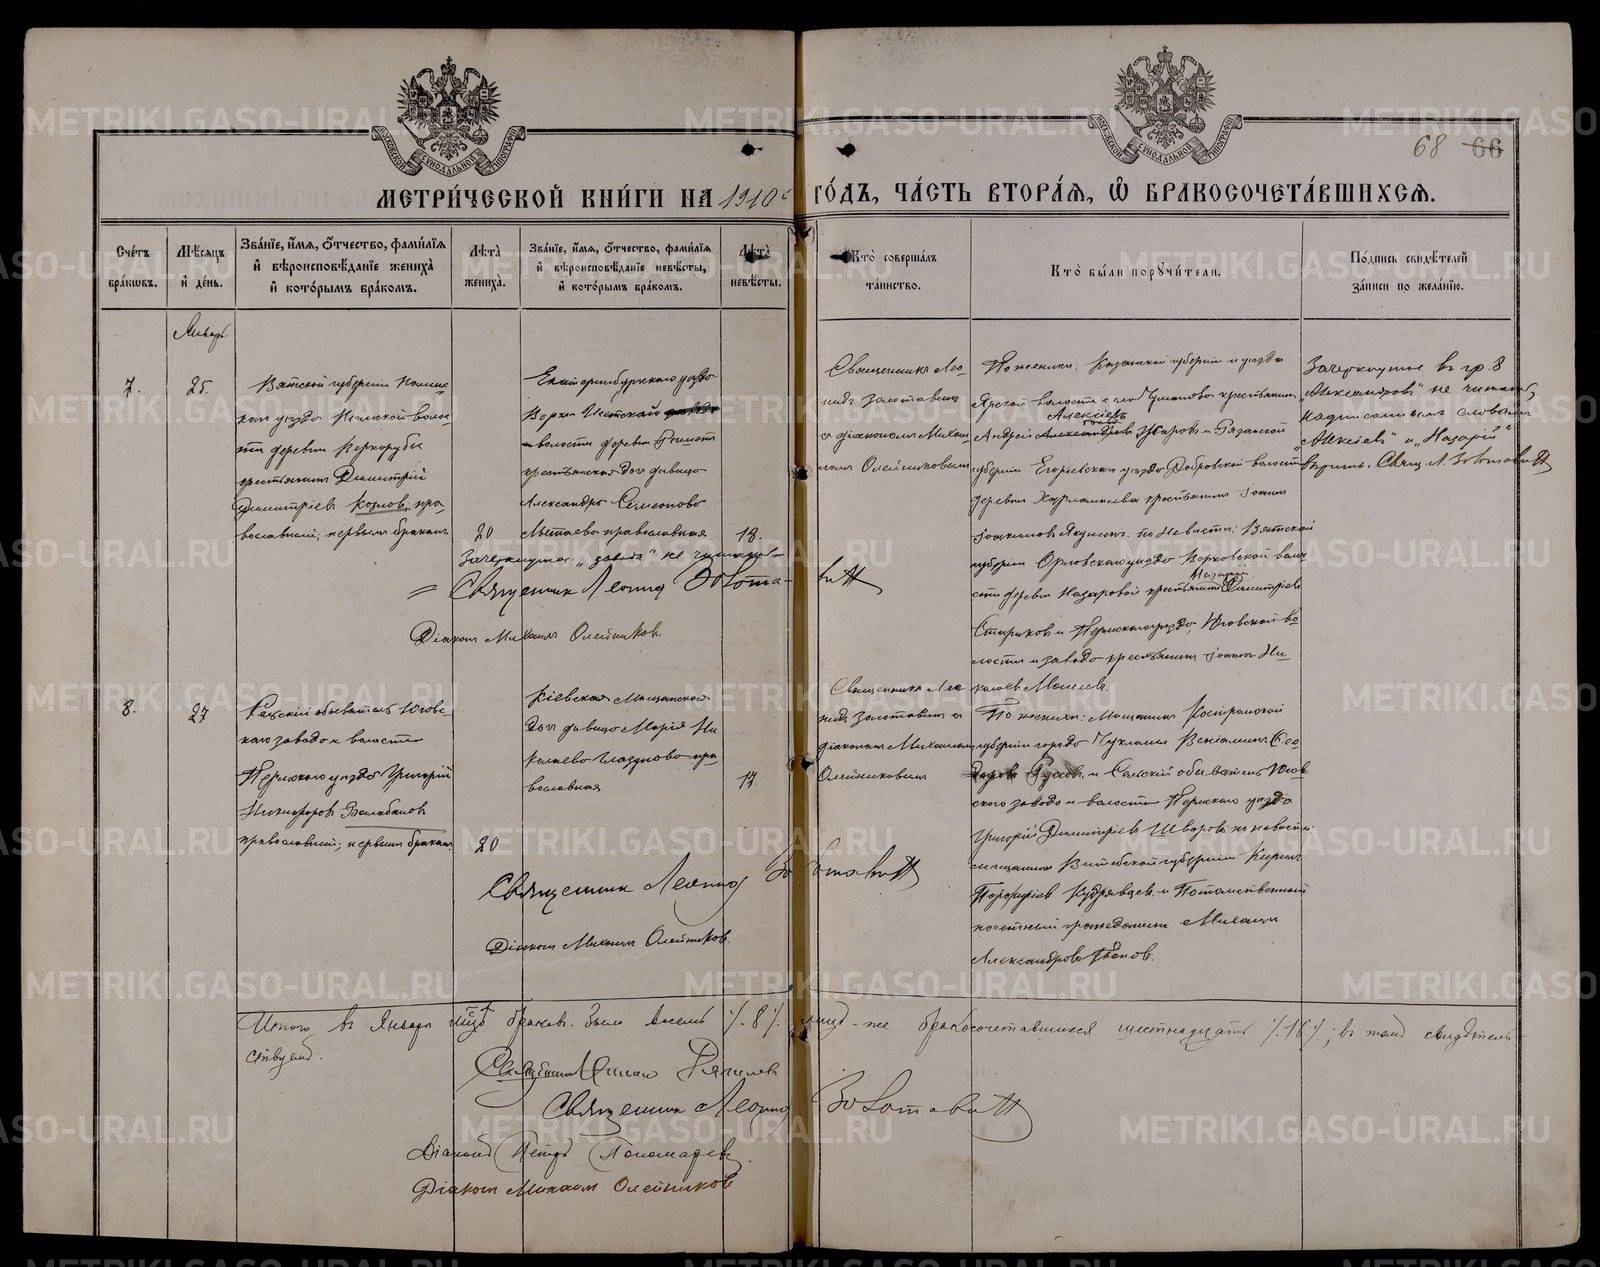 68 66
МЕТРИЧЕСКОЙ КНИГИ НА 1910 ГОДЪ, ЧАСТЬ ВТОРАЯ, Ѡ БРАКОСОЧЕТАВШИХСЯ.
Счетъ браковъ.
Мѣсяцъ и день.
Званіе, имя, отчество, фамилія и вѣроисповѣданіе жениха и которымъ бракомъ.
Лѣта жениха.
Званіе, имя, отчество, фамилія и вѣроисповѣданіе невѣсты, и которымъ бракомъ.
Лѣта невѣсты.
Кто совершалъ таинство.
Кто были поручители.
Подпись свидѣтелей записи по желанію.
Январь
7.
25.
Вятской губерніи
каго уѣзда
ти деревни
крестьянинъ Димитрій
Димитріевъ Козловъ, пра-
вославный, первымъ бракомъ
20
Екатеринбургскаго уѣзда
Верхъ Исетской
волости деревни
крестьянская дочь дѣвица
Александра Симеонова
православная
18.
Священникъ Лео-
нидъ Золотавинъ
съ діакономъ Михаи-
ломъ Олейниковымъ
По женихѣ: Казанской губерніи и уѣзда
волости села крестьянинъ
Алексіевъ
Андрей Александровъ Уваровъ и Рязанской
губерніи Егорьевскаго уѣзда волости
деревни крестьянинъ Іоаннъ
по невѣстѣ: Вятской
губерніи Орловскаго уѣзда Верховской воло-
Назарій
сти деревни Назаровой крестьянинъ Димитріевъ
Стариковъ и Пермскаго уѣзда, Юговской во-
лости и завода крестьянинъ Іоаннъ Ни-
колаевъ Моисеевъ.
Зачеркнутое въ гр. 8
„Александровъ“ не читать,
надписаннымъ словамъ
„Алексіевъ“ и „Назарій“
вѣрить. Свящ. Л. Золотавинъ
Зачеркнутое „завода“ не читать
Священникъ Леонидъ Золотавинъ
Діаконъ Михаилъ Олейниковъ.
8.
27
Сельскій обыватель Юговс-
каго завода и волости
Пермскаго уѣзда Григорій
Никифоровъ Балабановъ
православный; первымъ бракомъ.
20
Кіевская Мѣщанская
дочь дѣвица Марія Ни-
колаева Глазунова пра-
вославная
17.
Священникъ Лео-
нидъ Золотавинъ съ
діакономъ Михаиломъ
Олейниковымъ
По женихѣ: Мѣщанинъ Костромской
губерніи города Чухломы Веніаминъ Ѳео-
доровъ и Сельскій обыватель Югов-
скаго завода и волости Пермскаго уѣзда
Григорій Димитріевъ Шваровъ по невѣстѣ:
мѣщанинъ Витебской губерніи
Порфиріевъ Кудрявцевъ и Потомственный
почетный гражданинъ Михаилъ
Александровъ Поповъ.
Священникъ Леонидъ Золотавинъ
Діаконъ Михаилъ Олейниковъ.
Итого въ Январѣ мѣсяцѣ браковъ было восемь /.8/. лицъ-же бракосочетавшихся шестнадцать /.16/.; въ томъ свидѣтель-
ствуемъ:
Священникъ
Священникъ Леонидъ Золотавинъ
Діаконъ Петръ Пономаревъ
Діаконъ Михаилъ Олейниковъ
METRIKI.GASO-URAL.RU